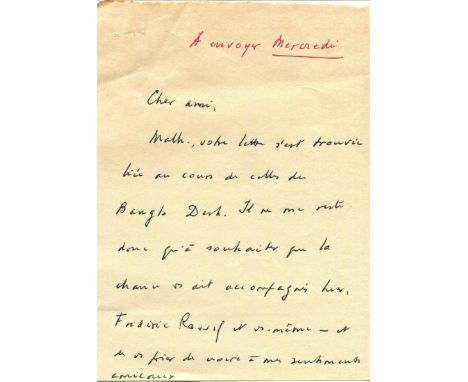 A envoyer Mercredi
Cher ami,
Malh., votre lettre s'est trouvée
liée au cours de celles du
Bangla Desh. Il ne me reste
donc qu'à souhaiter que la
chance vs ait accompagnés hier,
Frédéric Rossif et vs-même — et
de vs prier de croire à mes sentiments
amicaux